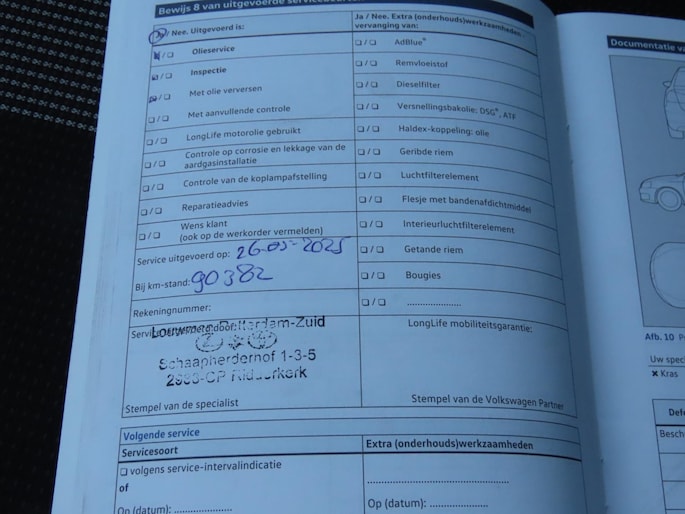 Bewijs 8 van uitgevoerde
Ja / Nee. Uitgevoerd is:
❏ / ❏ Olieservice
❏ / ❏ Inspectie
❏ / ❏ Met olie verversen
❏ / ❏ Met aanvullende controle
❏ / ❏ LongLife motorolie gebruikt
❏ / ❏ Controle op corrosie en lekkage van de
aardgasinstallatie
❏ / ❏ Controle van de koplampafstelling
❏ / ❏ Reparatieadvies
❏ / ❏ Wens klant
(ook op de werkorder vermelden)
Service uitgevoerd op: 26-05-2025
Bij km-stand: 90382
Rekeningnummer:
Rotterdam-Zuid
Schaapherderhof 1-3-5
Ridderkerk
Stempel van de specialist
Ja / Nee. Extra (onderhouds)werkzaamheden,
vervanging van:
❏ / ❏ AdBlue®
❏ / ❏ Remvloeistof
❏ / ❏ Dieselfilter
❏ / ❏ Versnellingsbakolie: DSG®, ATF
❏ / ❏ Haldex-koppeling: olie
❏ / ❏ Geribde riem
❏ / ❏ Luchtfilterelement
❏ / ❏ Flesje met bandenafdichtmiddel
❏ / ❏ Interieurluchtfilterelement
❏ / ❏ Getande riem
❏ / ❏ Bougies
❏ / ❏ .....................
LongLife mobiliteitsgarantie:
Stempel van de Volkswagen Partner
Volgende service
Servicesoort
❏ volgens service-intervalindicatie
of
On (datum): ..................
Extra (onderhouds)werkzaamheden
.............................................
Op (datum): ..................
Documentatie
Afb. 10
Uw
✖ Kras